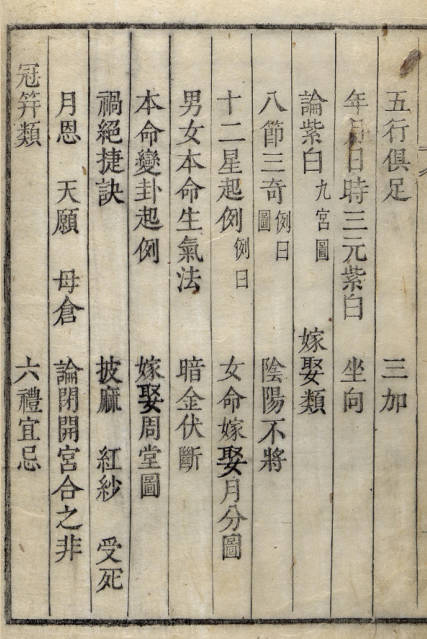 五行俱足 三加
年月日時三元紫白 坐向
論紫白 九宮圖 嫁娶類
八節三奇 例曰圖 陰陽不將
十二星起例 例曰 女命嫁娶月分圖
男女本命生氣法 暗金伏斷
本命變卦起例 嫁娶周堂圖
禍絕捷訣 披麻 紅紗 受死
月恩 天願 母倉 論閉開宮合之非
冠笄類 六禮宜忌